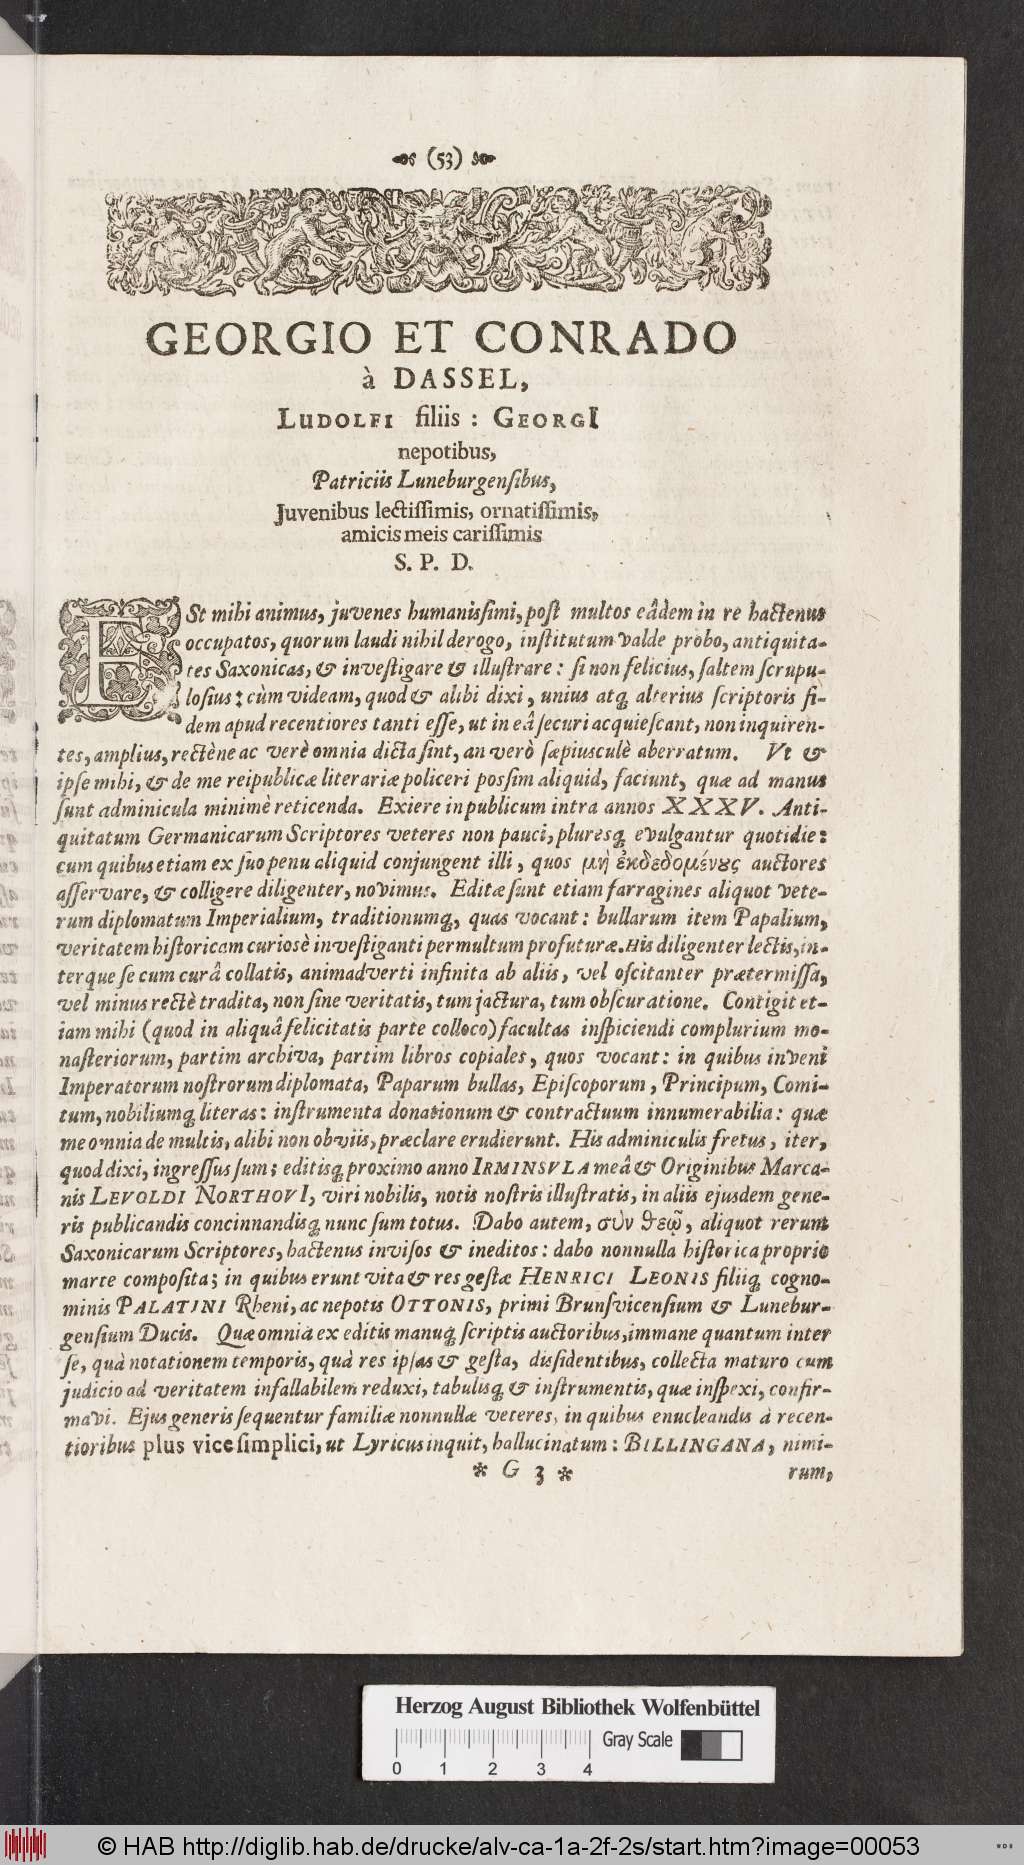 (53)
GEORGIO ET CONRADO
à DASSEL,
LUDOLFI filiis : GEORGI
nepotibus,
Patriciis Luneburgenſibus,
Juvenibus lectiſſimis, ornatiſſimis,
amicis meis cariſſimis
S. P. D.
ESt mihi animus, juvenes humanisſimi, poſt multos eâdem in re hactenus
occupatos, quorum laudi nihil derogo, inſtitutum valde probo, antiquita-
tes Saxonicas, & inveſtigare & illuſtrare : ſi non felicius, ſaltem ſcrupu-
loſius : cùm videam, quod & alibi dixi, unius atq; alterius ſcriptoris fi-
dem apud recentiores tanti eſſe, ut in eâ ſecuri acquieſcant, non inquiren-
tes, amplius, rectène ac verè omnia dicta ſint, an verò ſæpiusculè aberratum. Vt &
ipſe mihi, & de me reipublicæ literariæ policeri posſim aliquid, faciunt, quæ ad manus
ſunt adminicula minimè reticenda. Exiere in publicum intra annos XXXV. Anti-
quitatum Germanicarum Scriptores veteres non pauci, plureſq; evulgantur quotidie :
cum quibus etiam ex ſuo penu aliquid conjungent illi, quos μὴ ἐκδεδομένους auctores
aſſervare, & colligere diligenter, novimus. Editæ ſunt etiam farragines aliquot vete-
rum diplomatum Imperialium, traditionumq;, quas vocant : bullarum item Papalium,
veritatem hiſtoricam curiosè inveſtiganti permultum profuturæ. His diligenter lectis, in-
terque ſe cum curâ collatis, animadverti infinita ab aliis, vel oſcitanter prætermiſſa,
vel minus rectè tradita, non ſine veritatis, tum jactura, tum obſcuratione. Contigit et-
iam mihi (quod in aliquâ felicitatis parte colloco) facultas inſpiciendi complurium mo-
naſteriorum, partim archiva, partim libros copiales, quos vocant : in quibus inveni
Imperatorum noſtrorum diplomata, Paparum bullas, Epiſcoporum, Principum, Comi-
tum, nobiliumq; literas : inſtrumenta donationum & contractuum innumerabilia : quæ
me omnia de multis, alibi non obviis, præclare erudierunt. His adminiculis fretus, iter,
quod dixi, ingreſſus ſum ; editisq; proximo anno IRMINSVLA meâ & Originibus Marca-
nis LEVOLDI NORTHOVI, viri nobilis, notis noſtris illuſtratis, in aliis ejusdem gene-
ris publicandis concinnandisq; nunc ſum totus. Dabo autem, σὺν θεῷ, aliquot rerum
Saxonicarum Scriptores, hactenus inviſos & ineditos : dabo nonnulla hiſtorica proprio
marte compoſita ; in quibus erunt vita & res geſtæ HENRICI LEONIS filiiq; cogno-
minis PALATINI Rheni, ac nepotis OTTONIS, primi Brunſvicenſium & Lunebur-
genſium Ducis. Quæ omnia ex editis manuq; ſcriptis auctoribus, immane quantum inter
ſe, quà notationem temporis, quà res ipſas & geſta, disſidentibus, collecta maturo cum
judicio ad veritatem infallabilem reduxi, tabulisq; & inſtrumentis, quæ inſpexi, confir-
mavi. Ejus generis ſequentur familiæ nonnullæ veteres, in quibus enucleandis à recen-
tioribus plus vice ſimplici, ut Lyricus inquit, hallucinatum : BILLINGANA, nimi-
* G 3 *
rum,
Herzog August Bibliothek Wolfenbüttel
Gray Scale
0 1 2 3 4
© HAB http://diglib.hab.de/drucke/alv-ca-1a-2f-2s/start.htm?image=00053